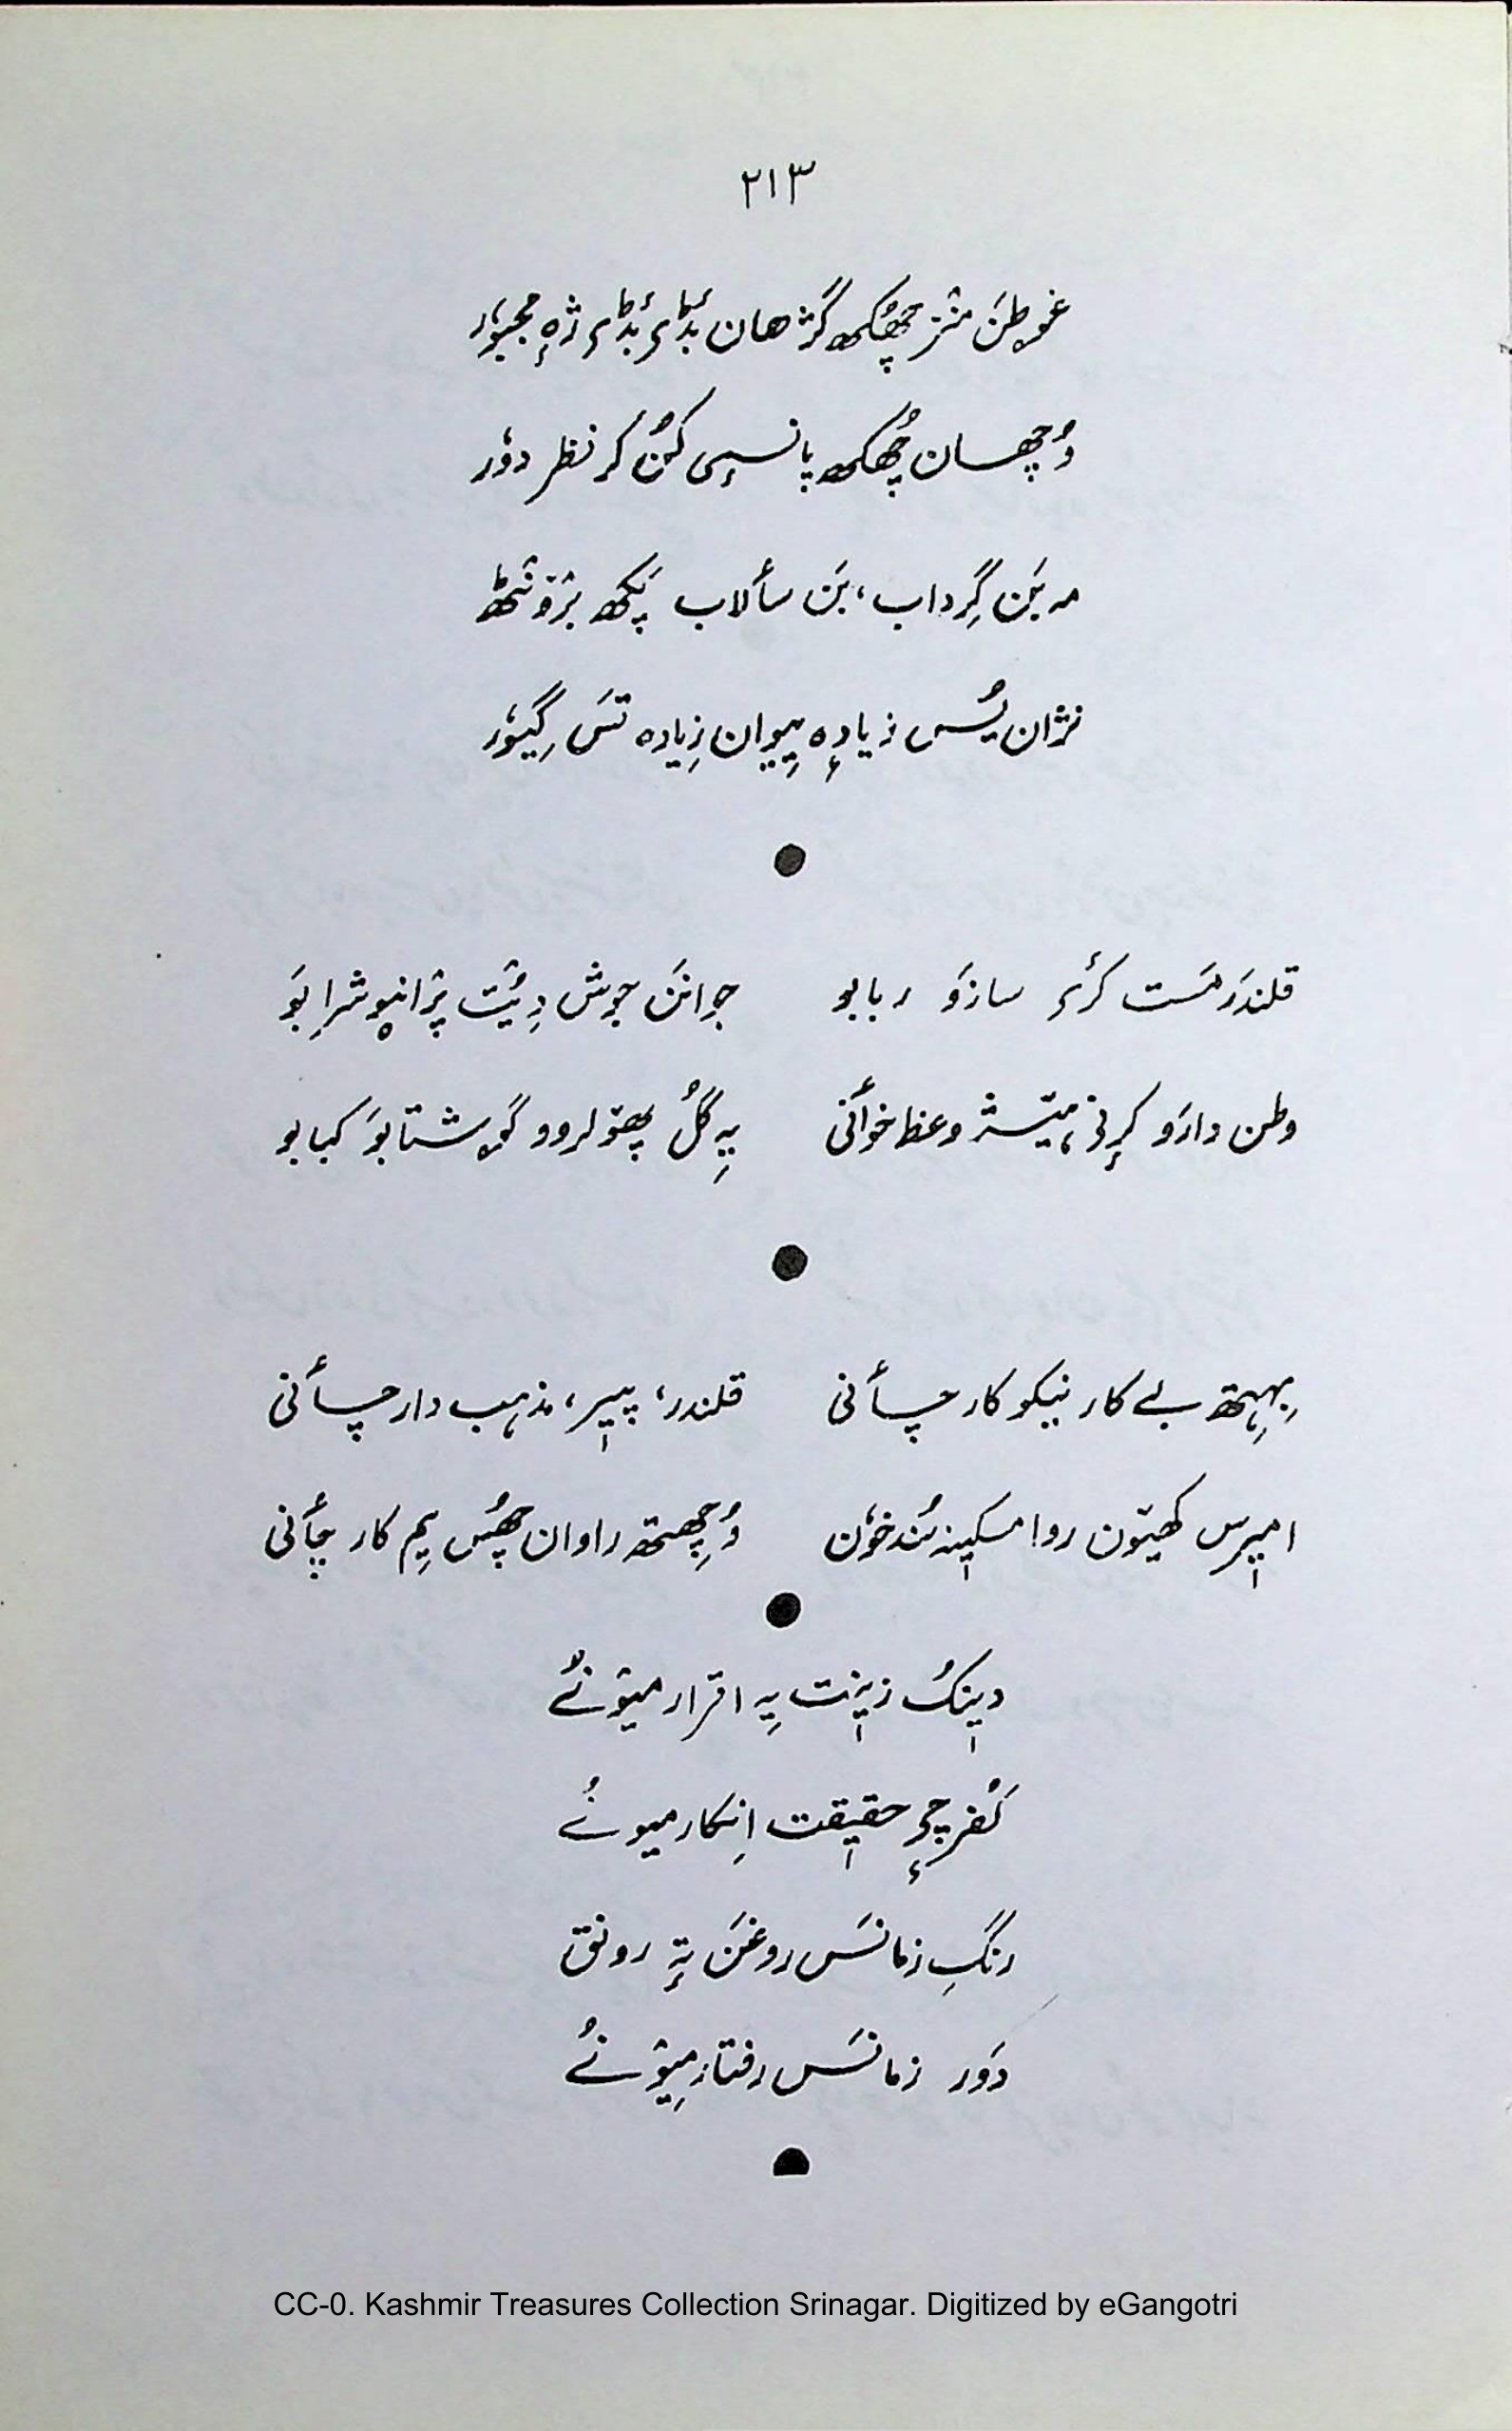 ۲۱۳
غوطن منٛز چھُکھ گژھان بٔڈی بٔڈی ژٕہ مجبوٗر
وُچھان چھُکھ پانسٕی کُن کر نظر دوٗر
مہ بَن گِرداب، بَن سأَلاب پَکھ برٛونٛٹھ
نژان یُس زیادٕہ پیوان زِیادہ تَس گیوٗر
●
قلندَر مَست کٔری سازَو ربابو جوانَن جوش دِیُت پرٛانیو شرابَو
وطن دارَو کرٕنۍ میتٕژ وعظ خوأنی یہِ گُل پھوٚلروو گوشتابَو کبابو
●
بِہِتھ بے کار نیکو کار چأنی قلندر، پیٖر، مذہب دار چأنی
امیٖرس کھیتون روا مسکیٖنہ سُند خوٗن وُچھِتھ راوان چھُس یِم کار چأنی
●
دیٖنکُ زیٖنت یہِ اقرار میٛونُے
کُفرچٕ حقیٖقت اِنکار میونُے
رنگِ زمانَس روغَن تہٕ رونق
دَورِ زمانَس رفتار میٛونُے
CC-0. Kashmir Treasures Collection Srinagar. Digitized by eGangotri